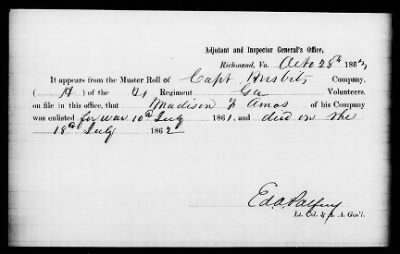 Adjutant and Inspector General's Office,
Richmond, Va. Octo 28th 1862,
It appears from the Muster Roll of Capt Nisbits Company,
(H) of the 21 Regiment Ga Volunteers,
on file in this office, that Madison F Amos of his Company
was enlisted for war 10th July 1861, and died on the
18th July 1862
Ed A Palfrey
Lt. Col. & A. A. Gen'l.